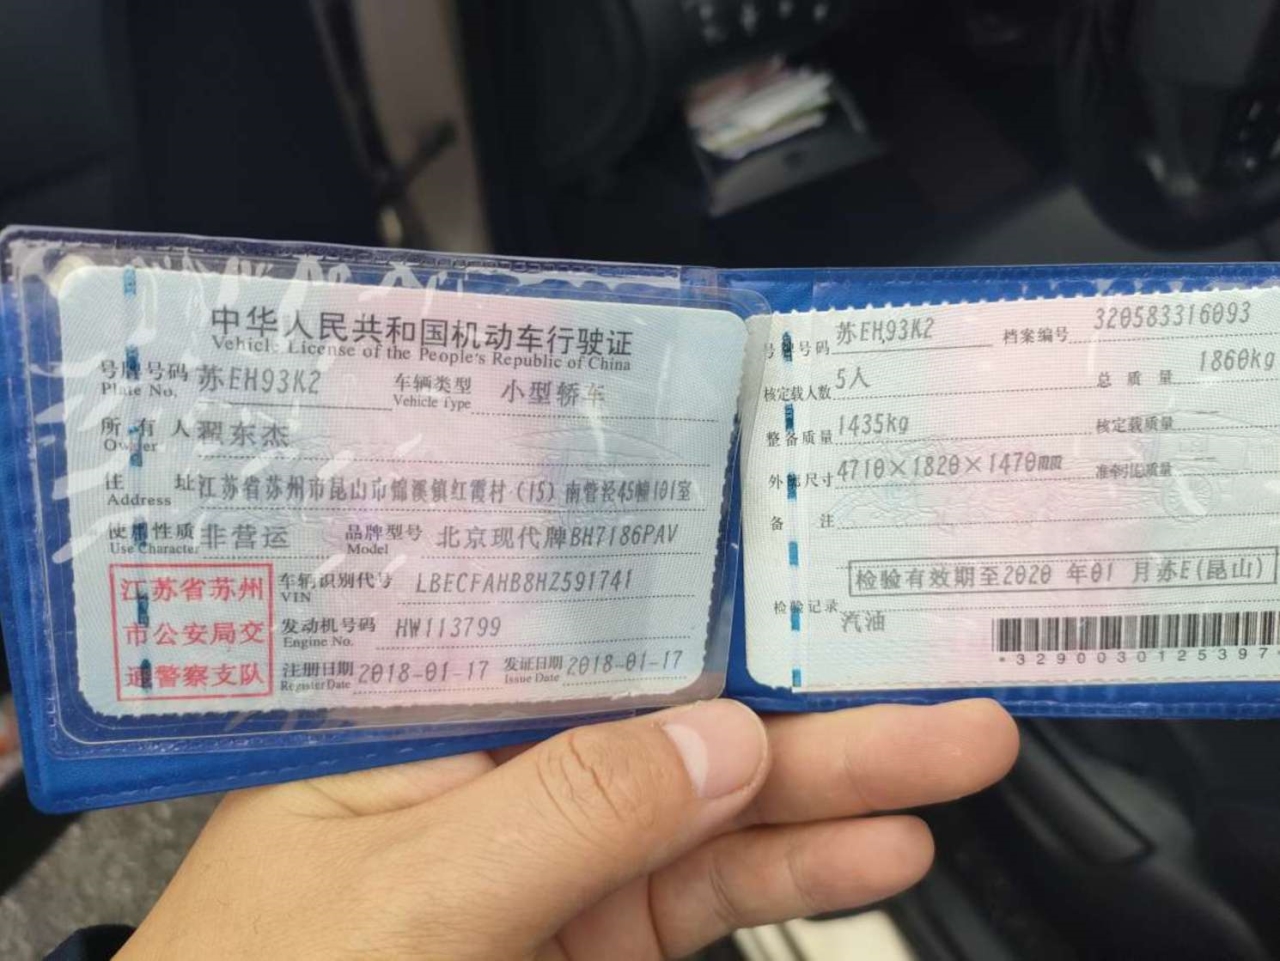 中华人民共和国机动车行驶证
Vehicle License of the People's Republic of China
号牌号码 苏EH93K2 车辆类型 小型轿车
Plate No. Vehicle Type
所有人 翟东杰
Owner
住址 江苏省苏州市昆山市锦溪镇红霞村(15)南管泾45幢101室
Address
使用性质 非营运 品牌型号 北京现代牌BH7186PAV
Use Character Model
江苏省苏州
市公安局交
通警察支队
车辆识别代号 LBECFAHB8HZ591741
VIN
发动机号码 HW113799
Engine No.
注册日期 2018-01-17 发证日期 2018-01-17
Register Date Issue Date
号牌号码 苏EH93K2 档案编号 320583316093
核定载人数 5人 总质量 1860kg
整备质量 1435kg 核定载质量
外廓尺寸 4710×1820×1470mm 准牵引总质量
备注
检验有效期至2020年01月苏E(昆山)
检验记录
汽油
*3290030125397